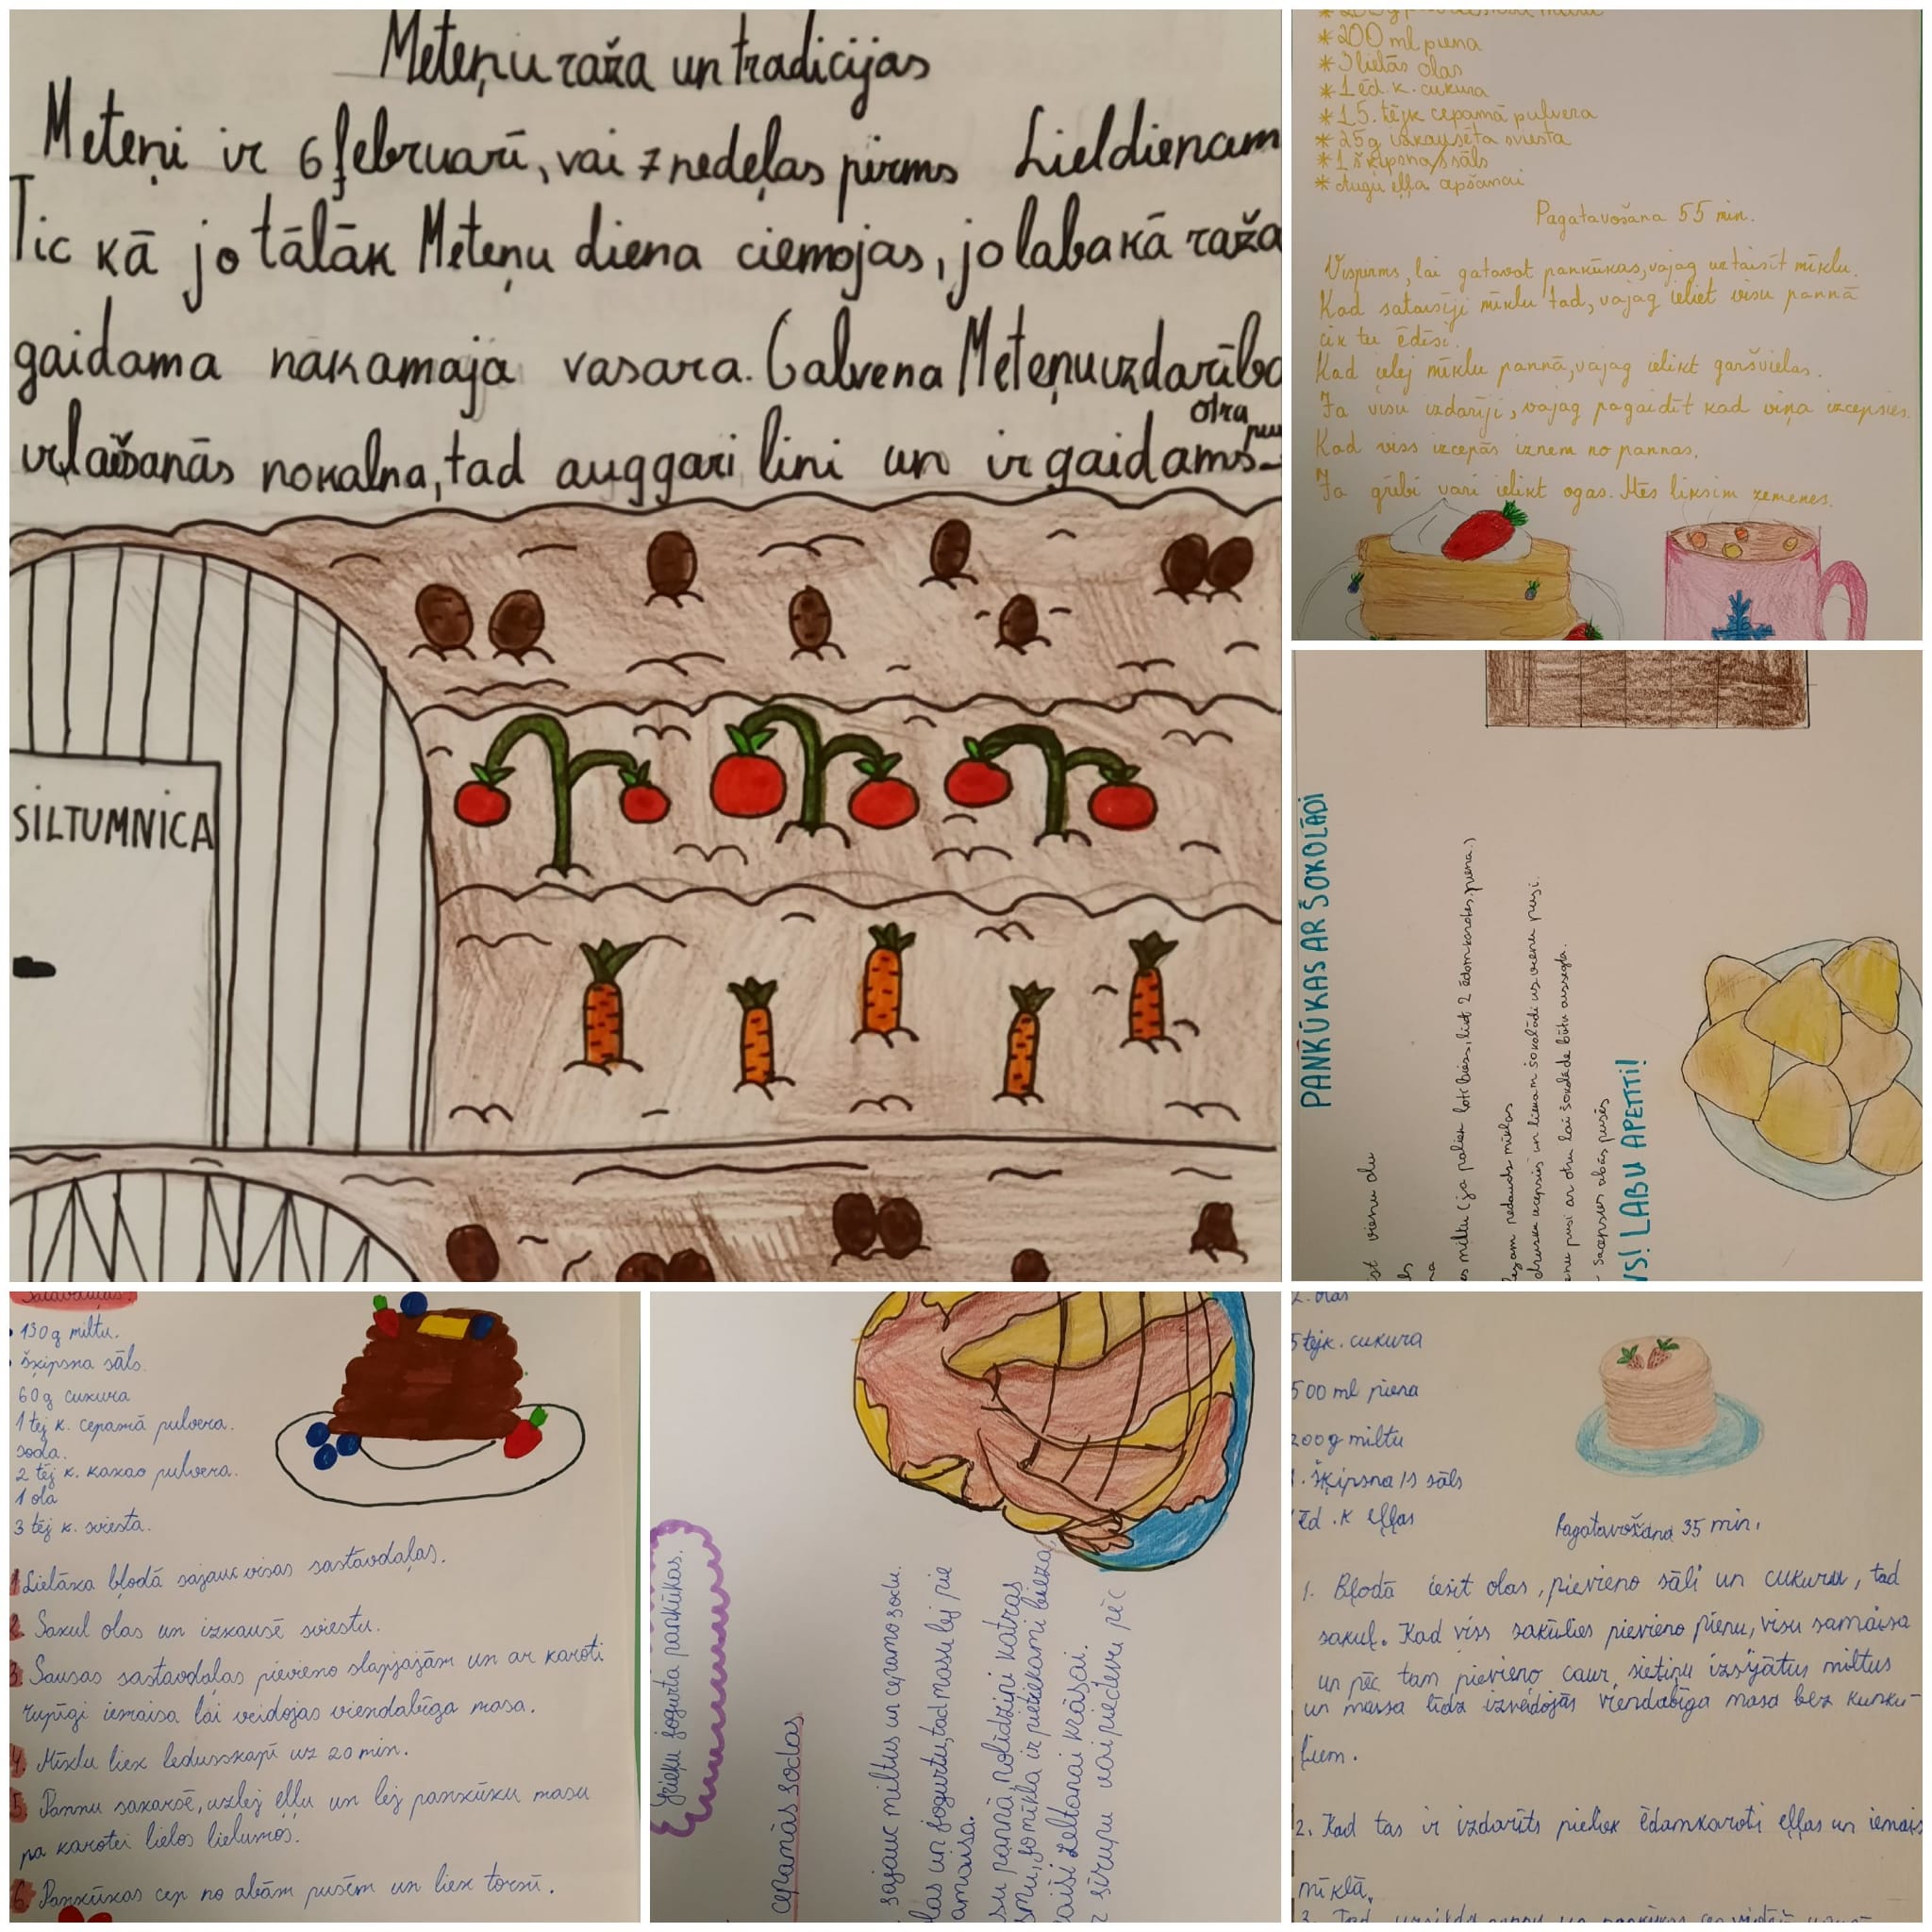 Meteņu raža un tradīcijas
Meteņi ir 6 februarī, vai 7 nedēļas pirms Lieldienam
Tic kā jo tālāk Meteņu diena ciemojas, jo labakā raža
gaidama nākamajā vasara. Galvena Meteņu uzdarība
ir laišanās no kalna, tad aug gari lini un ir gaidams
otra
SILTUMNICA
*200 ml piena
*3 lielās olas
*1 ēd. k. cukura
*1.5. tējk cepamā pulvera
*25 g izkausēta sviesta
*1 šķipsna/s sāls
*Augu eļļa apšanai
Pagatavošana 55 min.
Vispirms, lai gatavot pankūkas, vajag uztaisīt mīklu.
Kad sataisīji mīklu tad, vajag ieliet visu pannā
cik tu ēdīsi.
Kad ielej mīklu pannā, vajag ielikt garšvielas.
Ja visu izdarīji, vajag pagaidīt kad viņa izcepsies.
Kad viss izcepās izņem no pannas.
Ja gribi vari ielikt ogas. Mēs liksim zemenes.
PANKŪKAS AR ŠOKOLĀDI
vienu olu
miltu (ja paliek loti biezs, liet 2 ēdamkarotes piena.)
nedaudz mīklas
izcepsies un liekam šokolādi uz vienu pusi.
pusi ar otru lai šokolāde būtu aizsegta.
sacepsies abās pusēs
LABU APETĪTI!
Sastāvdaļas:
• 130g miltu.
• šķipsna sāls.
60g cukura
1 tēj k. cepamā pulvera.
soda.
2 tēj k. kakao pulvera.
1 ola
3 tēj k. sviesta.
1. Lielāka bļodā sajauc visas sastavdaļas.
2. Sakul olas un izkausē sviestu.
3. Sausas sastavdaļas pievieno slapjajām un ar karoti
rupīgi iemaisa lai veidojas viendabīga masa.
4. Mīklu liek ledusskapī uz 20 min.
5. Pannu sakarsē, uzlej eļļu un lej pankūku masu
pa karotei lielos lielumos.
6. Pankūkas cep no abām pusēm un liek tornī.
grieķu jogurta pankūkas.
cepamās sodas
sajauc miltus un cepamo sodu.
un jogurtu, tad masu lej pie
pannā, nolīdzini katras
jo mīkla ir pietiekami bieza,
zeltanai krāsai.
sīrupu vai piedevu pēc
2. olas
5 tējk. cukura
500 ml piena
200g miltu
1. šķipsna/s sāls
ēd. k eļļas
Pagatavošana 35 min.
1. Bļodā iesit olas, pievieno sāli un cukuru, tad
sakuļ. Kad viss sakūlies pievieno pienu, visu samaisa
un pēc tam pievieno caur sietiņu izsijātus miltus
un maisa līdz izveidojās viendabīga masa bez kunku-
ļiem.
2. Kad tas ir izdarīts pieliek ēdamkaroti eļļas un iemais
mīklā.
3. Tad